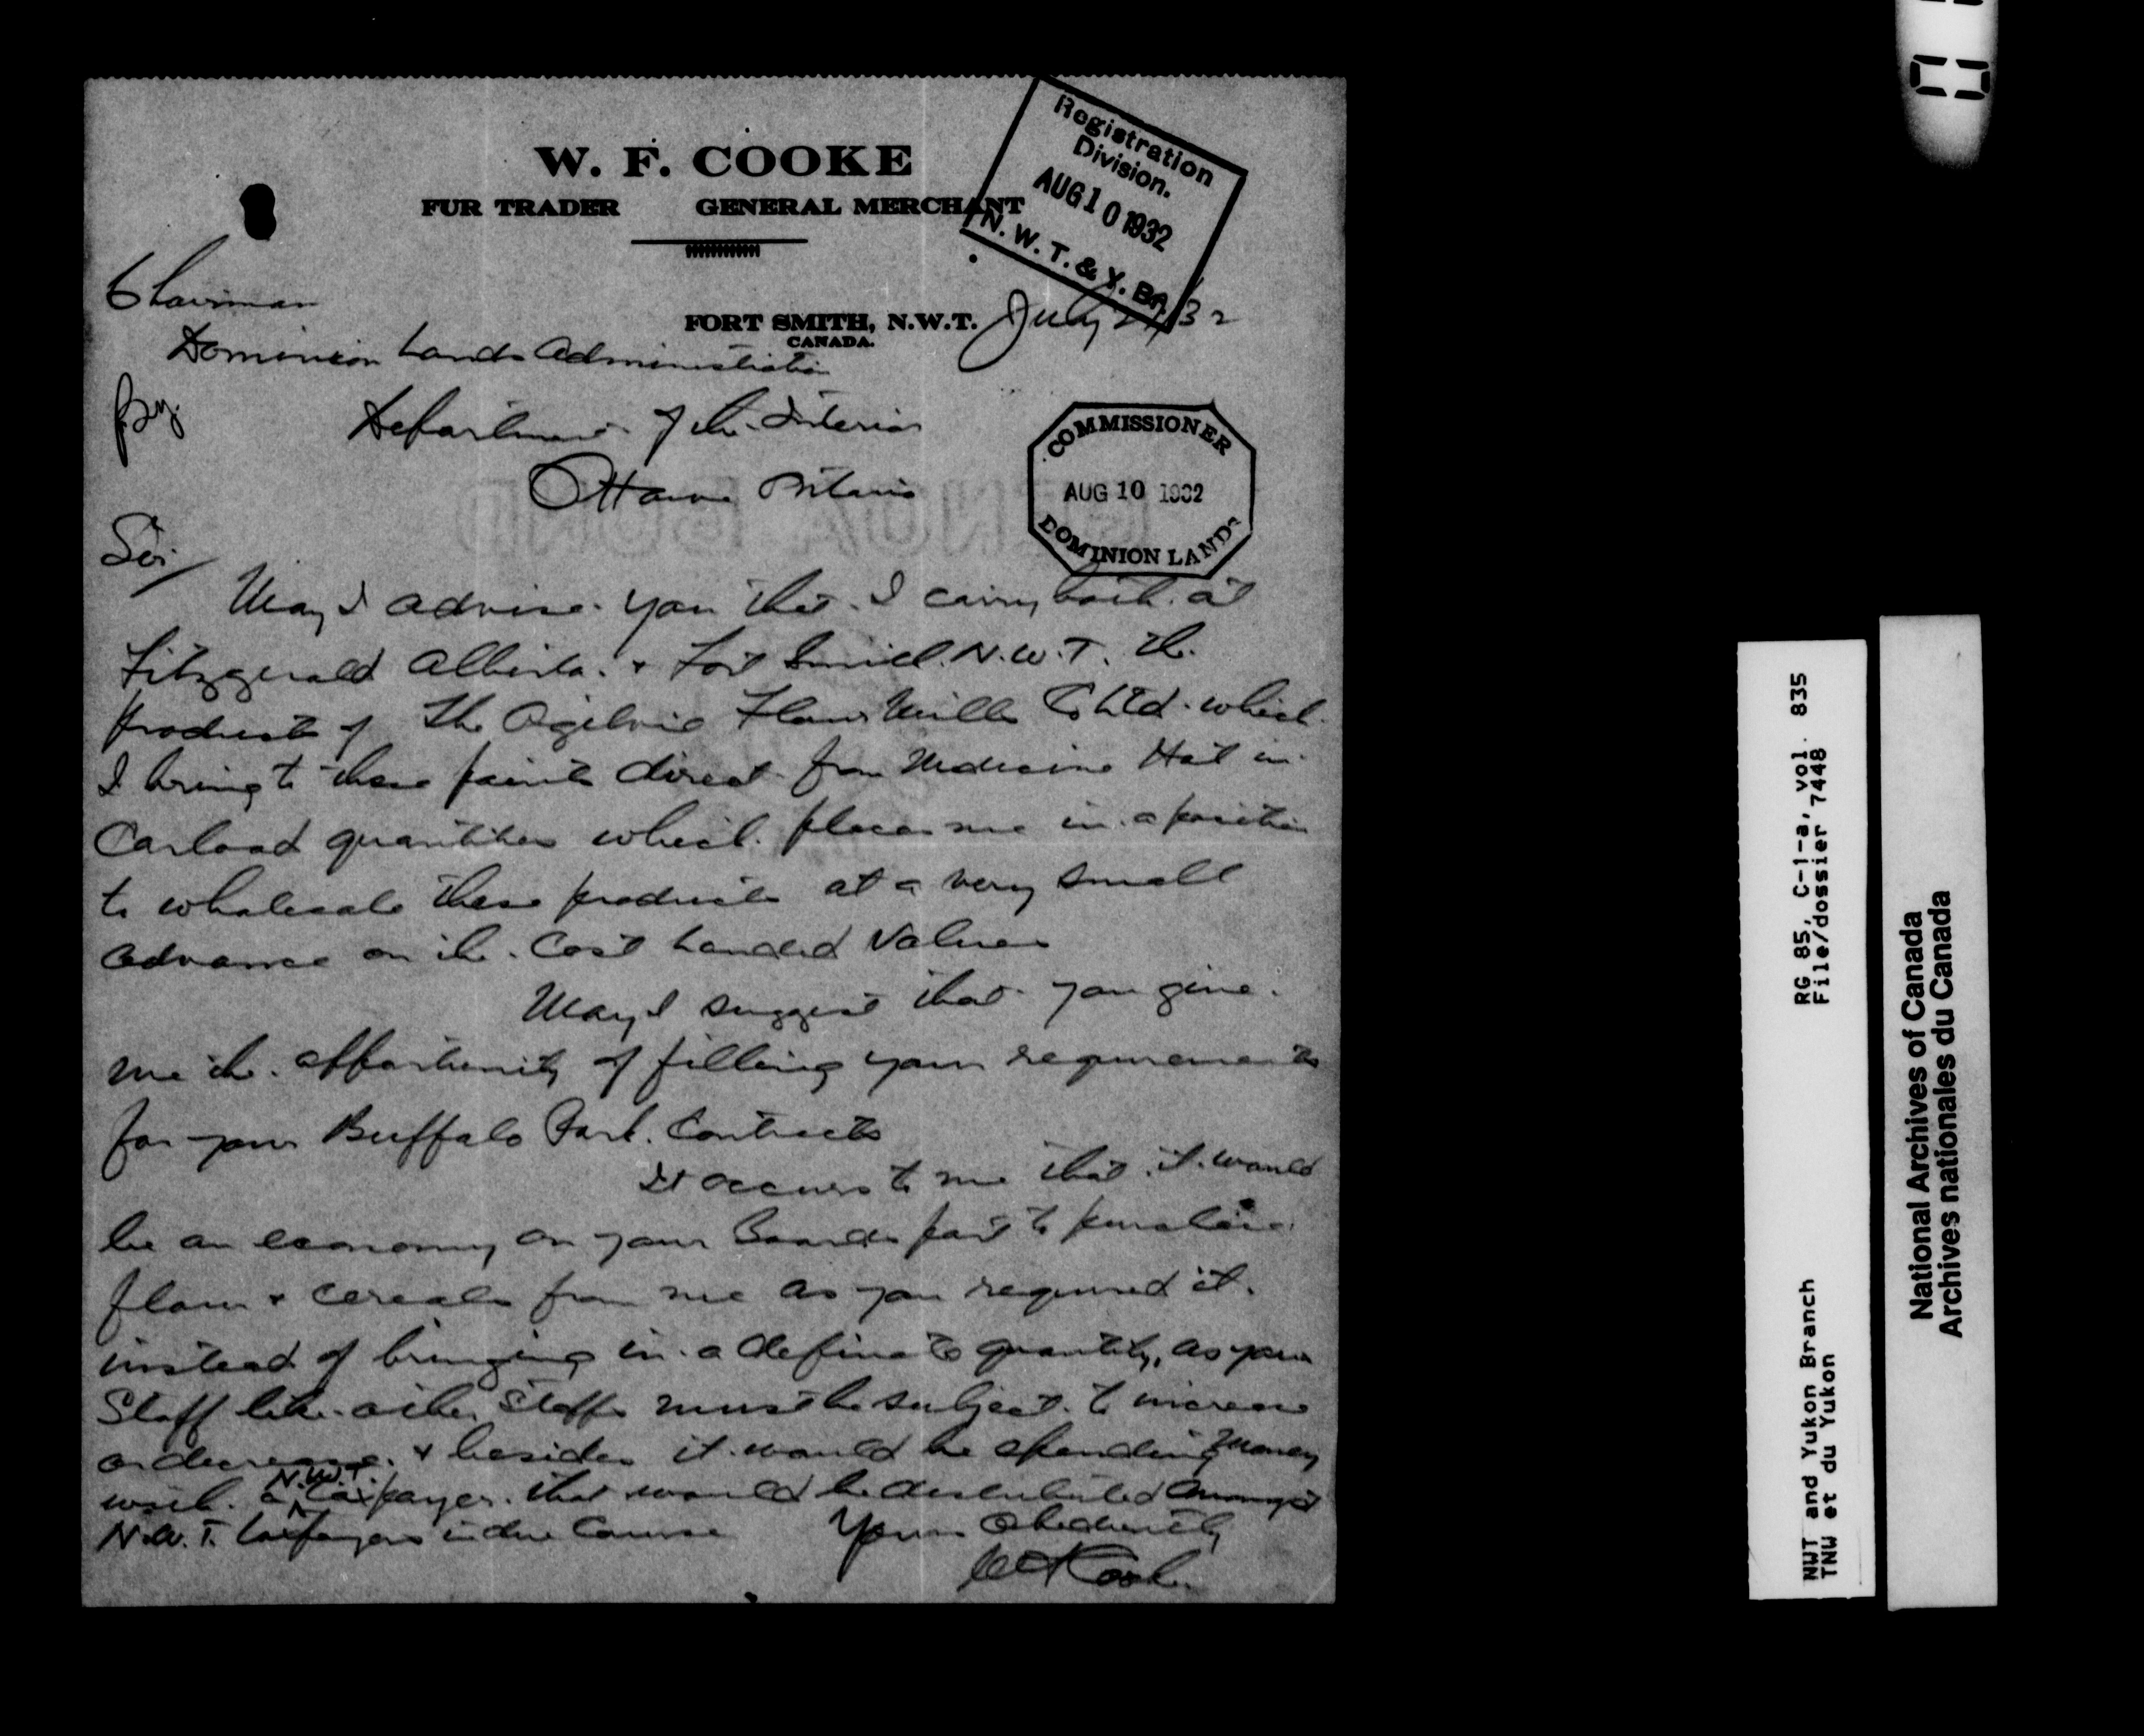 W. F. COOKE
FUR TRADER GENERAL MERCHANT
Registration
Division.
AUG 10 1932
N. W. T. & Y. Br.
FORT SMITH, N.W.T. July /32
CANADA.
Chairman
Dominion Lands Administration
Department of the Interior
Ottawa Ontario
COMMISSIONER
AUG 10 1932
DOMINION LANDS
Sir/
May I advise you that I carry both at
Fitzgerald Alberta. & Fort Smith. N.W.T. the
products of The Ogilvie Flour Mills Co Ltd. which
I bring to these points direct from Medicine Hat in
Carload quantities which places me in a position
to wholesale these products at a very small
advance on the Cost Landed Values
May I suggest that you give
me the opportunity of filling your requirements
for your Buffalo Park Contracts
It occurs to me that it would
be an economy on your Boards part to purchase
flour & cereals from me as you required it.
instead of bringing in a definate quantity, as your
Staff like other Staffs must be subject to increase
or decrease. & besides it would be spending money
with a N.W.T. taxpayer. that would be distributed amongst
N.W.T. taxpayers in due Course Yours Obediently
WF Cooke
RG 85, C-1-a, vol. 835
File/dossier 7448
NWT and Yukon Branch
TNW et du Yukon
National Archives of Canada
Archives nationales du Canada